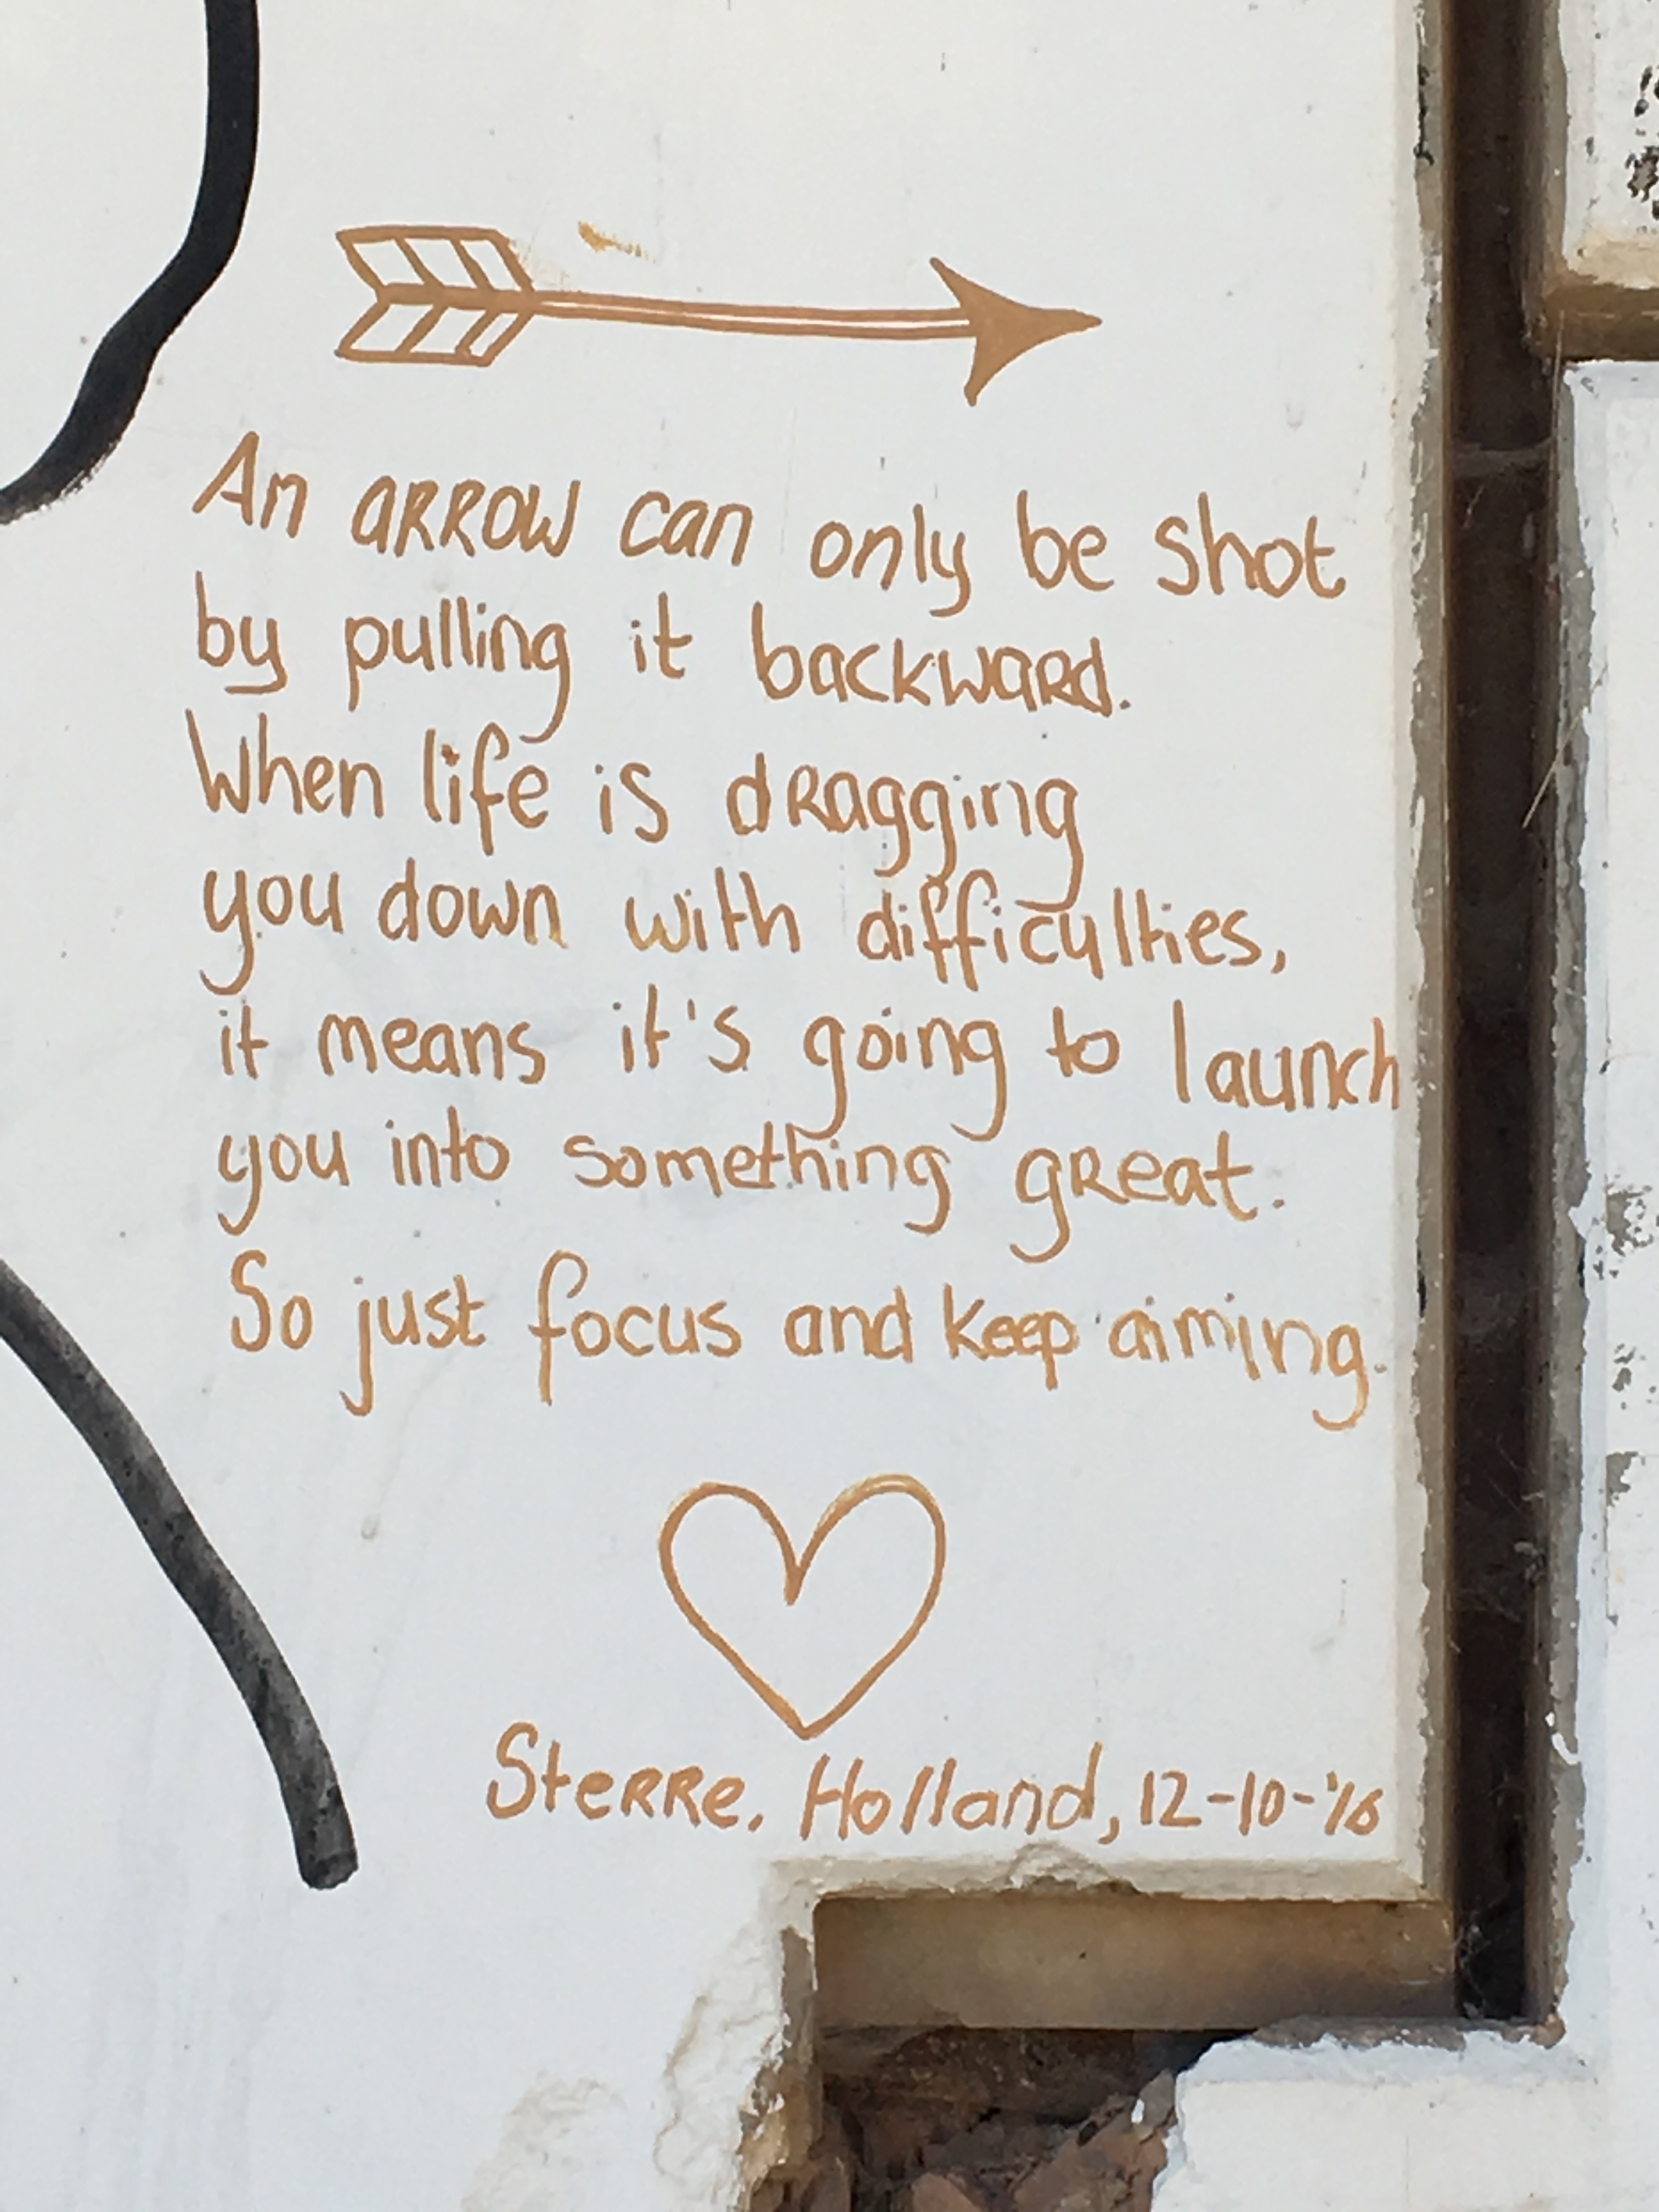 An aRROW can only be shot
by pulling it backwaRd.
When life is dRagging
you down with difficulties,
it means it's going to launch
you into something gReat.
So just focus and keep aiming.
SteRRe. Holland, 12-10-'16